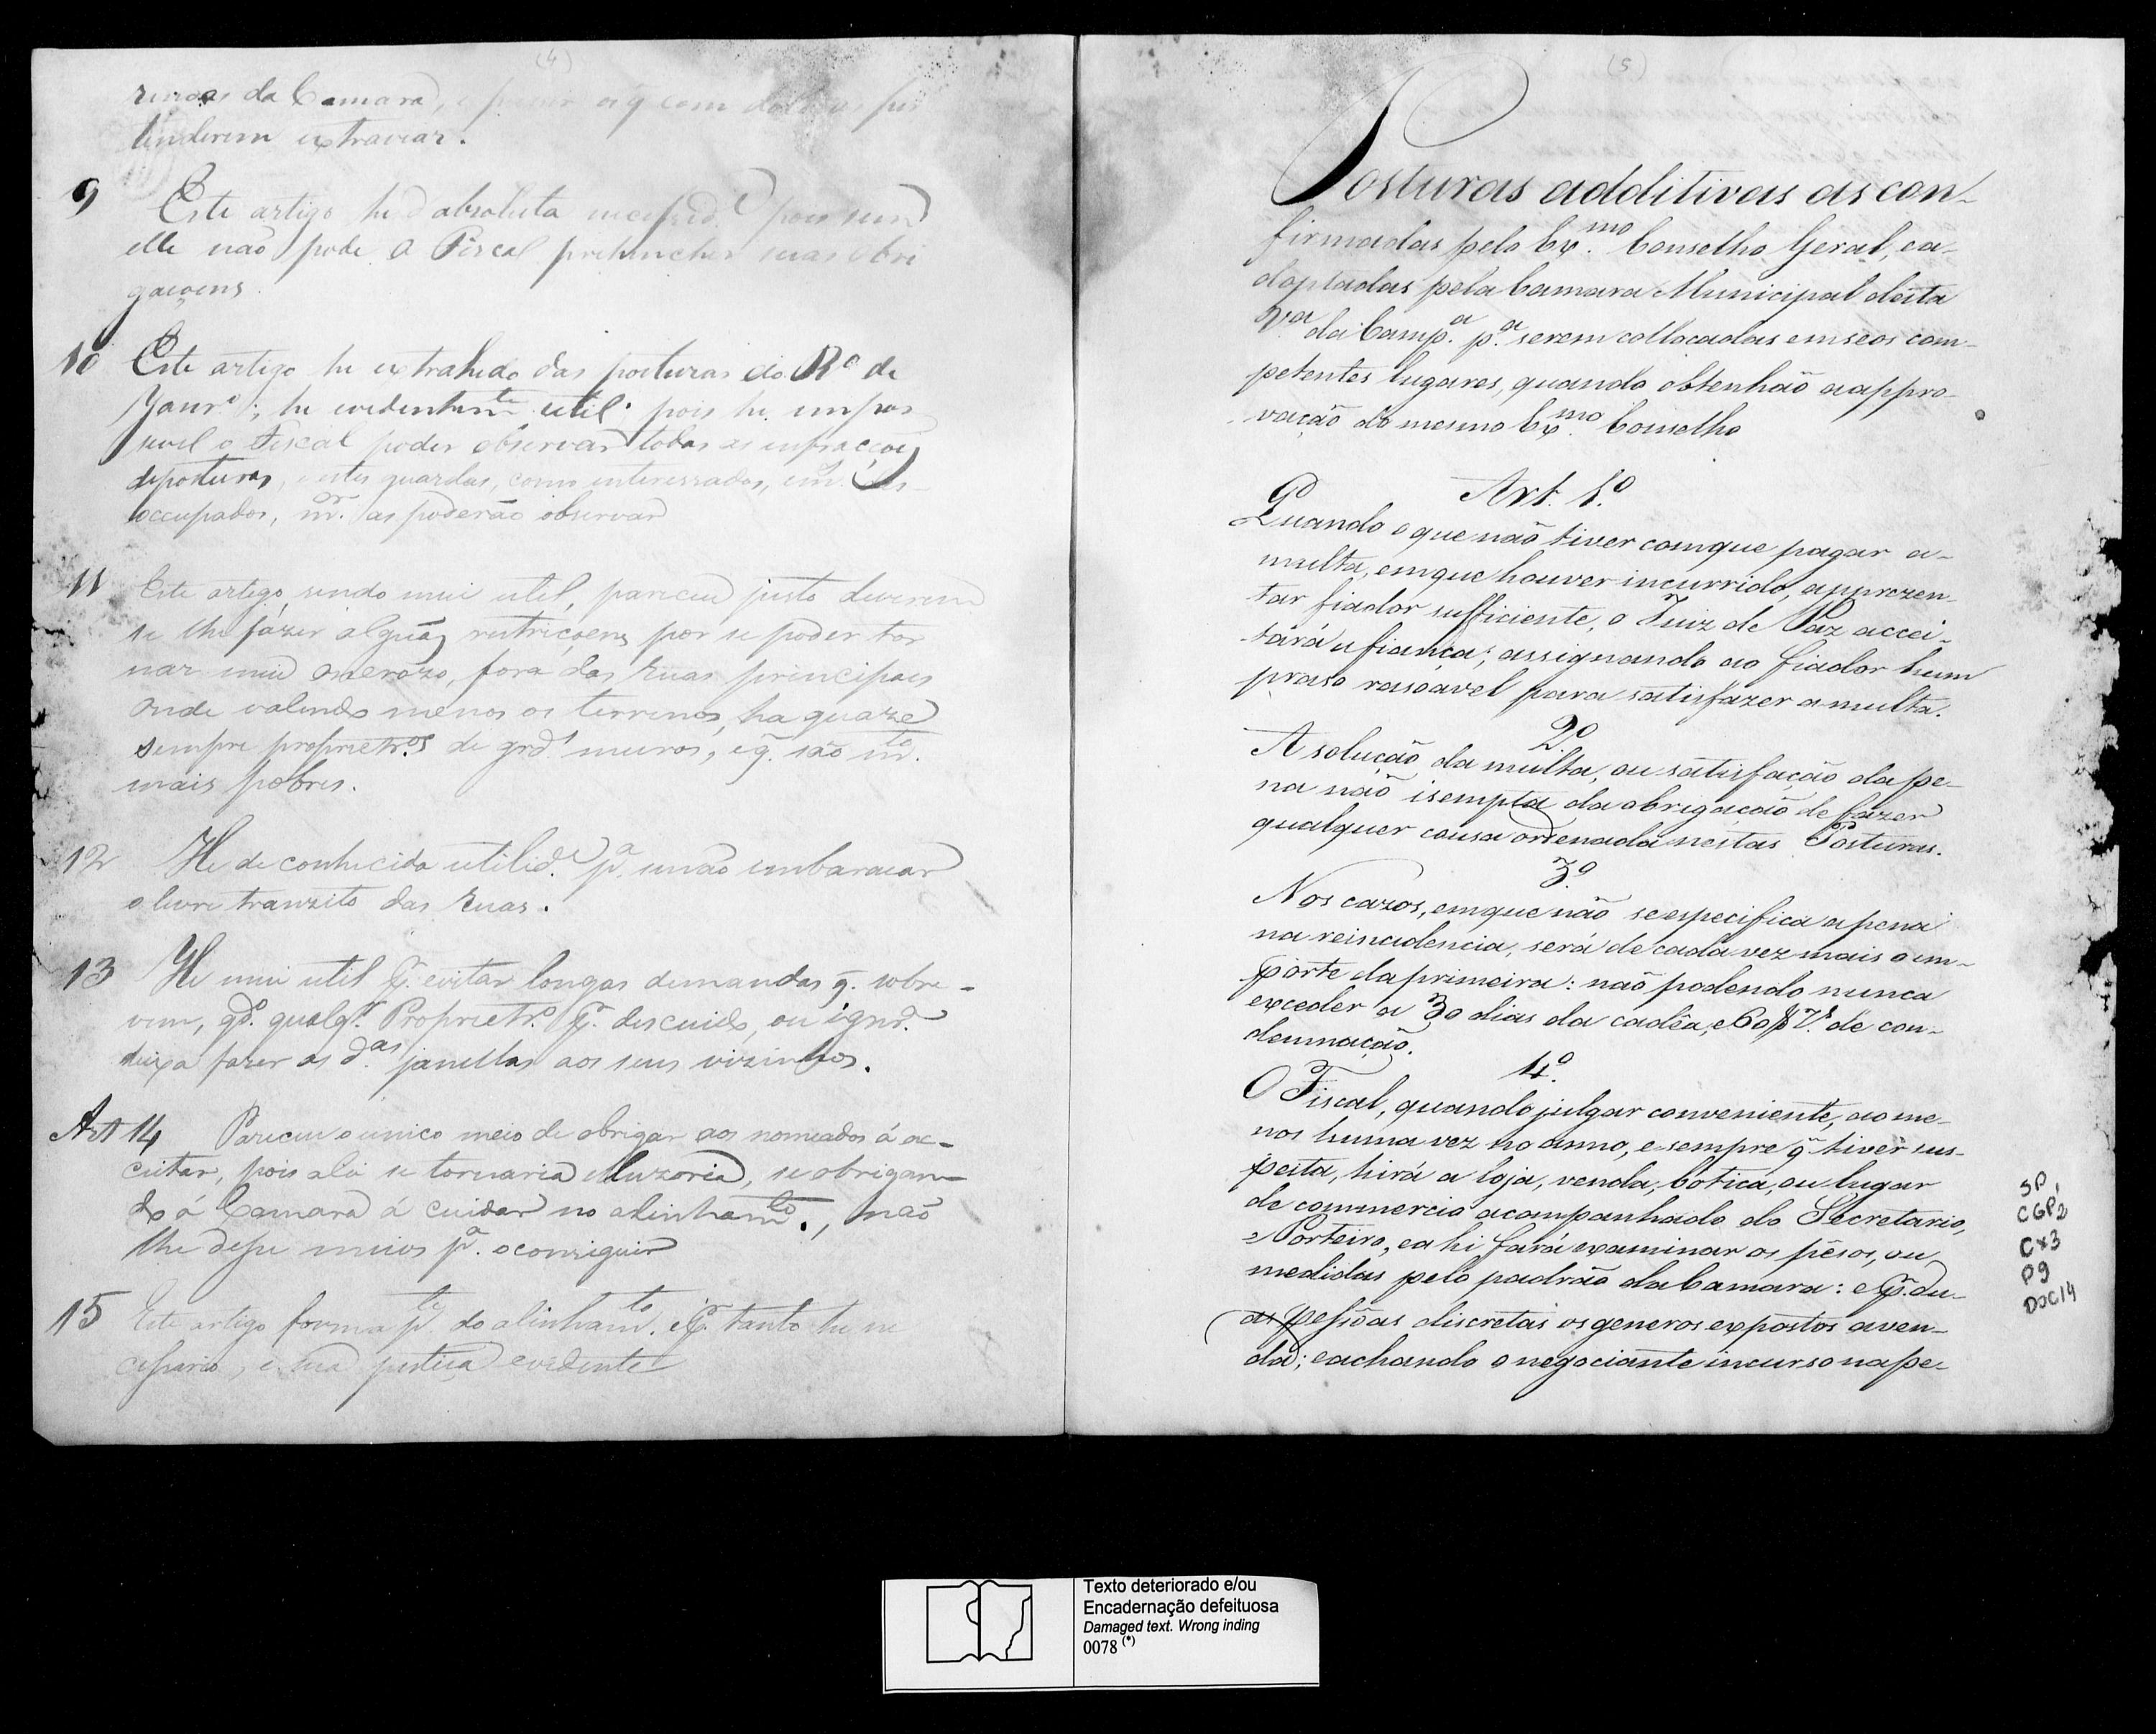 (4)
rendas da Camara, e punir os q com dolo as pre
tenderem extraviar.
9 Este artigo he d absoluta necessid.e pois sem
elle não pode o Fiscal prehencher suas obri
gaçoens.
10 Este artigo he extrahido das posturas do Rº de
Janrº; he evidentemte util: pois he impos
sivel o Fiscal poder observar todas as infracçoes
de posturas, estes guardas, como interessados,
occupados, mr. as poderão observar
11 Este artigo, sendo mui util, pareceu justo deverem
se lhe fazer alguãs restricçoens por se poder tor
nar mui onerozo, fora das Ruas principaes
onde valendo menos os terrenos, ha quaze
sempre proprietros de grd.s muros, e q. são mto.
mais pobres.
12 He de conhecida utilid.e pa. se não embaraçar
o livre tranzito das Ruas.
13 He mui util pr. evitar longas demandas q. sobre-
vem, qdo. qualqr. Proprietrº. pr. descuido, ou ignra.
deixa fazer as das. janellas aos seus vizinhos.
Art 14 Pareceu o unico meio de obrigar aos nomeados á ac-
ceitar, pois a Lei se tornaria illuzoria, se obrigan-
do á Camara á cuidar no alinhamto., não
lhe desse meios pa. o conseguir
15 Este artigo forma pte do alinhamto. e pr. tanto he ne
cessario, e sua justiça evidente
(5)
Posturas additivas as con-
firmadas pelo Exmo. Conselho Geral, ea-
doptadas pela Camara Municipal desta
Va da Campa. pa. serem collocadas em seos com-
petentes lugares, quando obtenhão a appro-
vação do mesmo Exmo. Conselho
Art. 1.º
Quando o que não tiver com que pagar a-
multa, em que houver incurrido, apprezen-
tar fiador sufficiente, o Juiz de Paz accei-
tará a fiança; assignando ao fiador hum
praso rasoavel para satisfazer a multa.
2º
A solução da multa, ou satisfação da pe-
na não isempta da obrigação de fazer
qualquer cousa ordenada nestas Posturas.
3.º
Nos cazos, em que não se especifica a pena
na reincidencia, será de cada vez mais o im-
porte da primeira: não podendo nunca
exceder a 30 dias da cadêa, e 60$rs. de con-
demnação.
4º.
O Fiscal, quando julgar conveniente, ao me-
nos huma vez no anno, e sempre q tiver sus-
peita, hirá a loja, venda, botica, ou lugar
de commercio acompanhado do Secretario,
e Porteiro, e a hi fará examinar os pêsos, ou
medidas pelo padrão da Camara: e pr. du-
as pessôas discretas os generos expostos a ven-
da; e achando o negociante incurso na pe-
SP
CGP2
Cx3
P9
DOC14
Texto deteriorado e/ou
Encadernação defeituosa
Damaged text. Wrong inding
0078 (*)